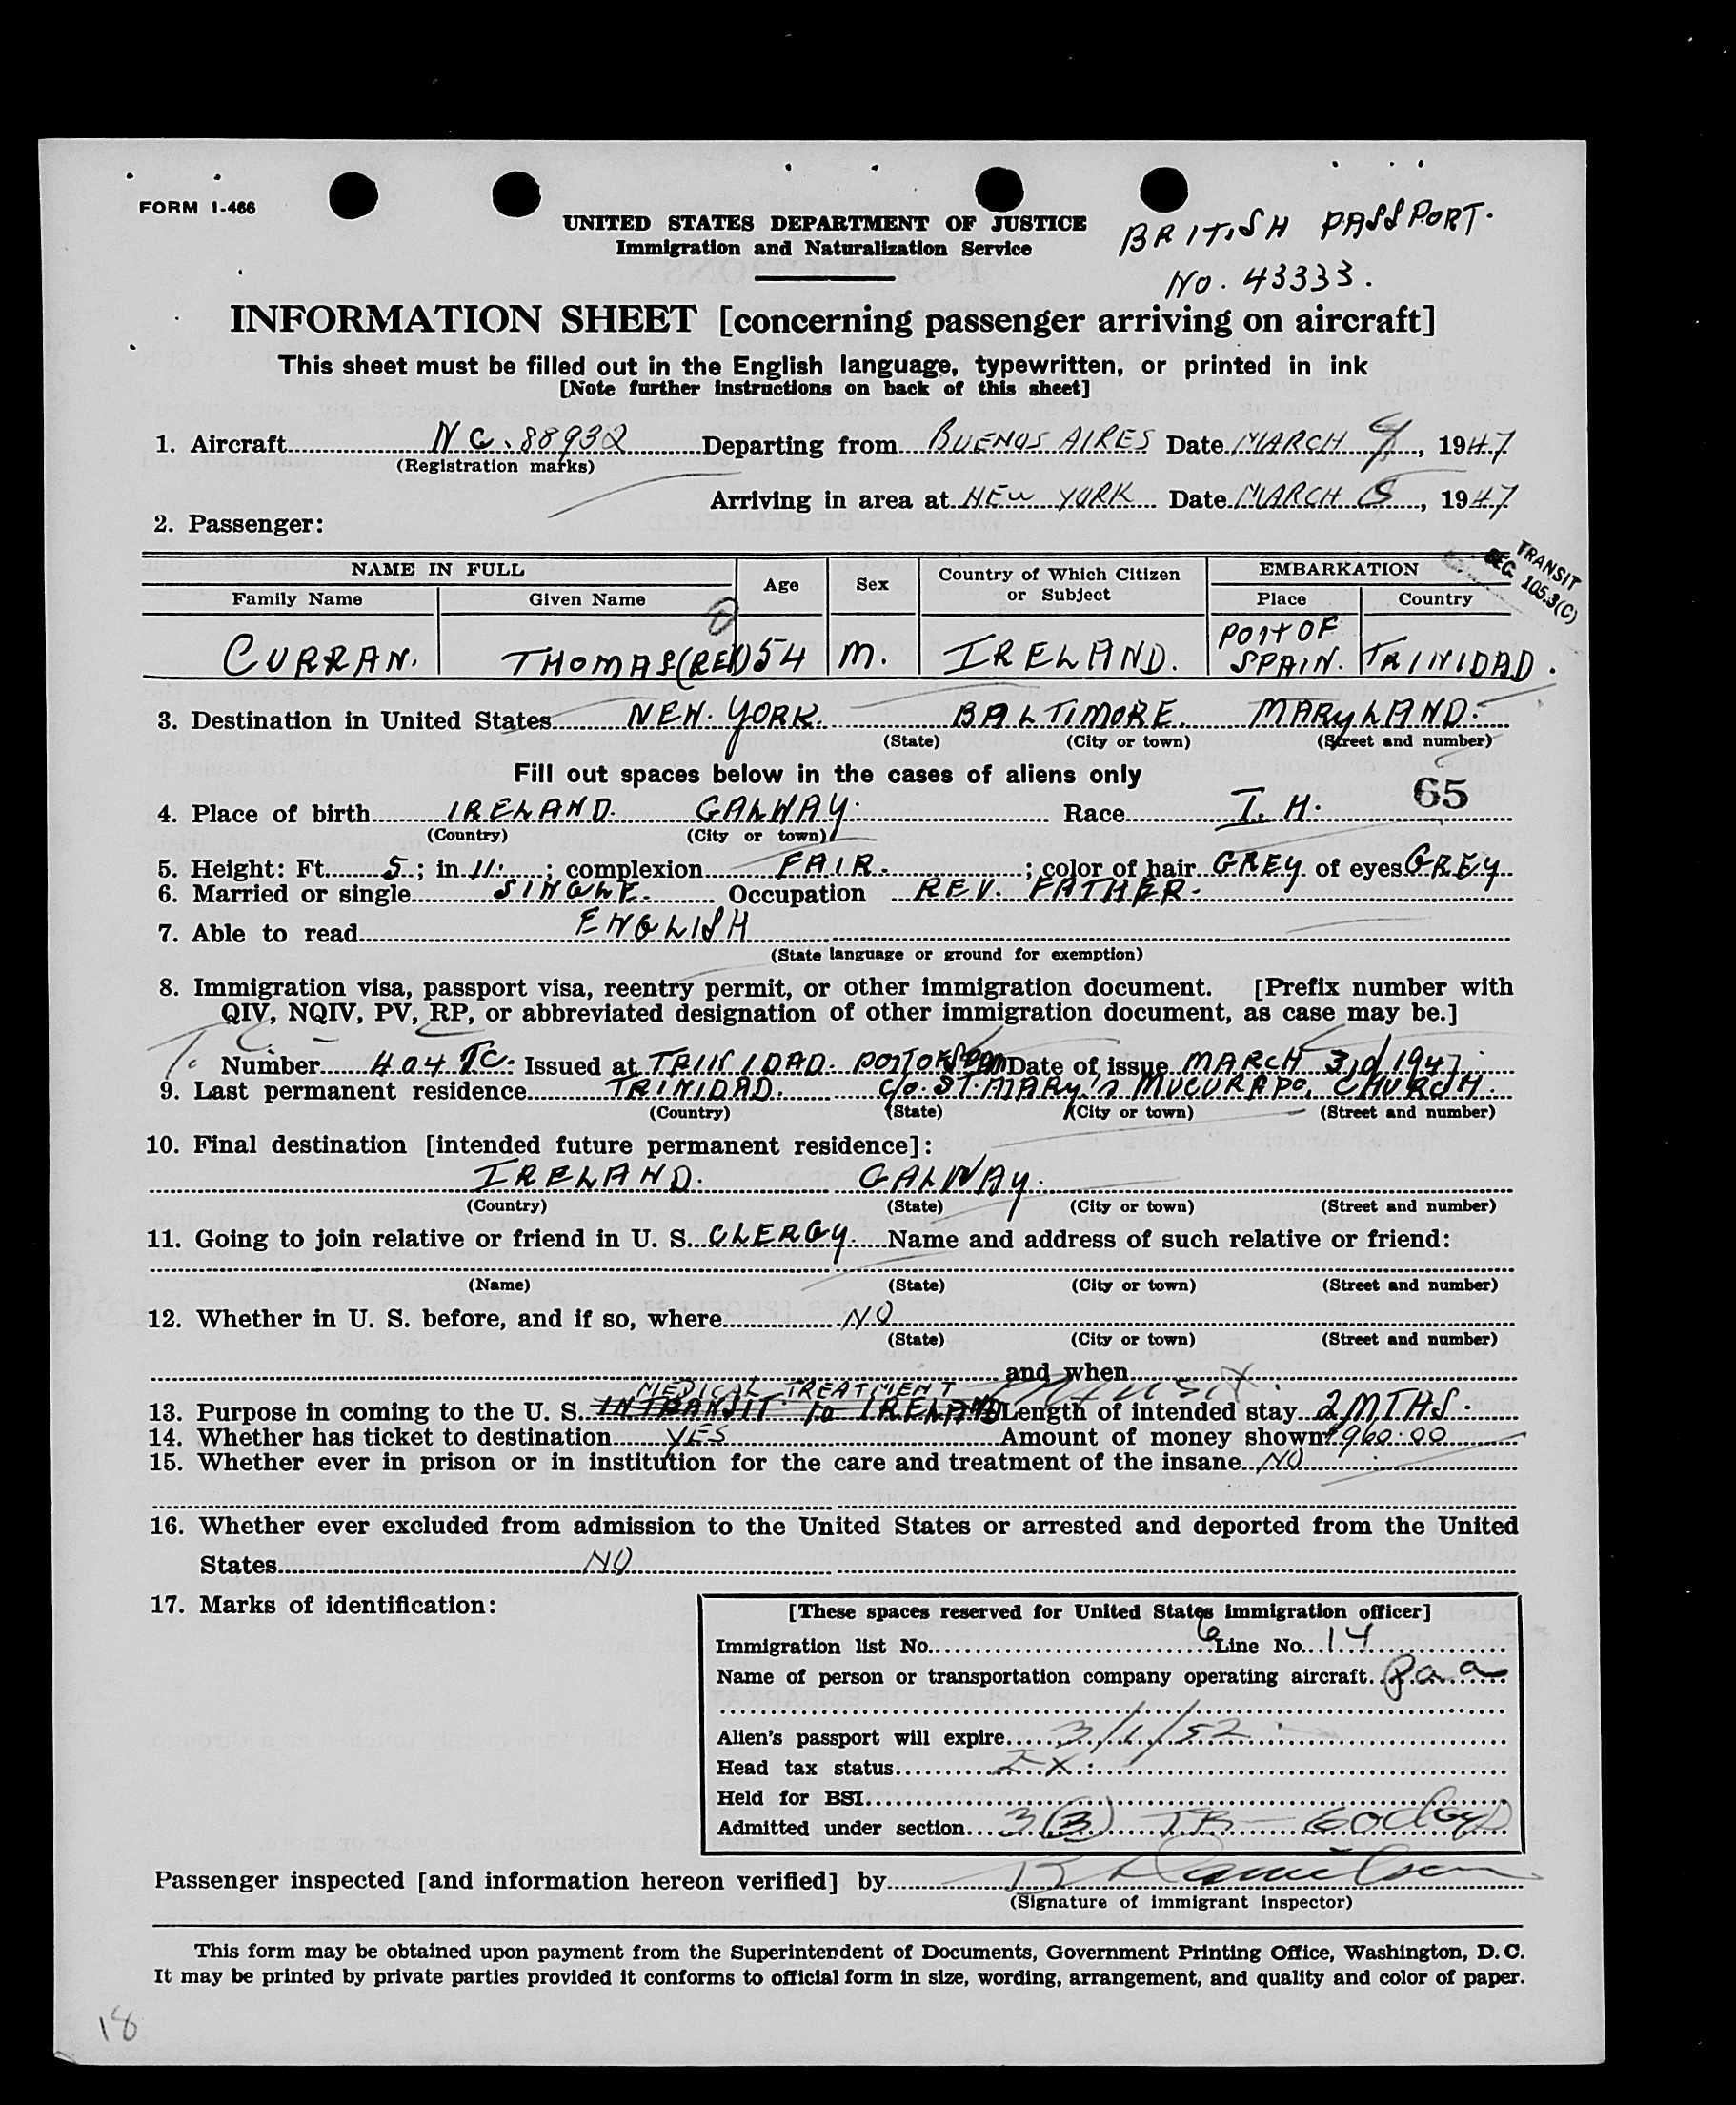 FORM I-466
UNITED STATES DEPARTMENT OF JUSTICE
Immigration and Naturalization Service
BRITISH PASSPORT.
No. 43333.
INFORMATION SHEET [concerning passenger arriving on aircraft]
This sheet must be filled out in the English language, typewritten, or printed in ink
[Note further instructions on back of this sheet]
1. Aircraft NC. 88932 Departing from BUENOS AIRES Date MARCH, 1947
(Registration marks)
Arriving in area at NEW YORK Date MARCH 5, 1947
2. Passenger:
TRANSIT
SEC. 105.3(C)
NAME IN FULL Age Sex Country of Which Citizen or Subject EMBARKATION
Family Name Given Name Place Country
CURRAN. THOMAS (REV) 54 M. IRELAND. PORT OF SPAIN. TRINIDAD.
3. Destination in United States NEW. YORK. BALTIMORE. MARYLAND.
(State) (City or town) (Street and number)
Fill out spaces below in the cases of aliens only
65
4. Place of birth IRELAND. GALWAY. Race I. H.
(Country) (City or town)
5. Height: Ft. 5; in. 11.; complexion FAIR.; color of hair GREY. of eyes GREY
6. Married or single SINGLE. Occupation REV. FATHER.
7. Able to read ENGLISH
(State language or ground for exemption)
8. Immigration visa, passport visa, reentry permit, or other immigration document. [Prefix number with
QIV, NQIV, PV, RP, or abbreviated designation of other immigration document, as case may be.]
T.C.
Number 404 TC. Issued at TRINIDAD. PORT OF SPAIN Date of issue MARCH 3rd 1947.
9. Last permanent residence TRINIDAD. c/o. ST. MARY'S MUCURAPO, CHURCH.
(Country) (State) (City or town) (Street and number)
10. Final destination [intended future permanent residence]:
IRELAND. GALWAY.
(Country) (State) (City or town) (Street and number)
11. Going to join relative or friend in U. S. CLERGY. Name and address of such relative or friend:
(Name) (State) (City or town) (Street and number)
12. Whether in U. S. before, and if so, where NO
(State) (City or town) (Street and number)
and when
MEDICAL TREATMENT Transit.
13. Purpose in coming to the U. S. IN TRANSIT to IRELAND Length of intended stay 2 MTHS.
14. Whether has ticket to destination YES Amount of money shown $960.00
15. Whether ever in prison or in institution for the care and treatment of the insane NO
16. Whether ever excluded from admission to the United States or arrested and deported from the United
States NO
17. Marks of identification:
[These spaces reserved for United States immigration officer]
Immigration list No. 6 Line No. 14
Name of person or transportation company operating aircraft Paa
Alien's passport will expire 3/1/52
Head tax status EX.
Held for BSI
Admitted under section 3(3) 60 days
Passenger inspected [and information hereon verified] by Danielson
(Signature of immigrant inspector)
This form may be obtained upon payment from the Superintendent of Documents, Government Printing Office, Washington, D. C.
It may be printed by private parties provided it conforms to official form in size, wording, arrangement, and quality and color of paper.
18